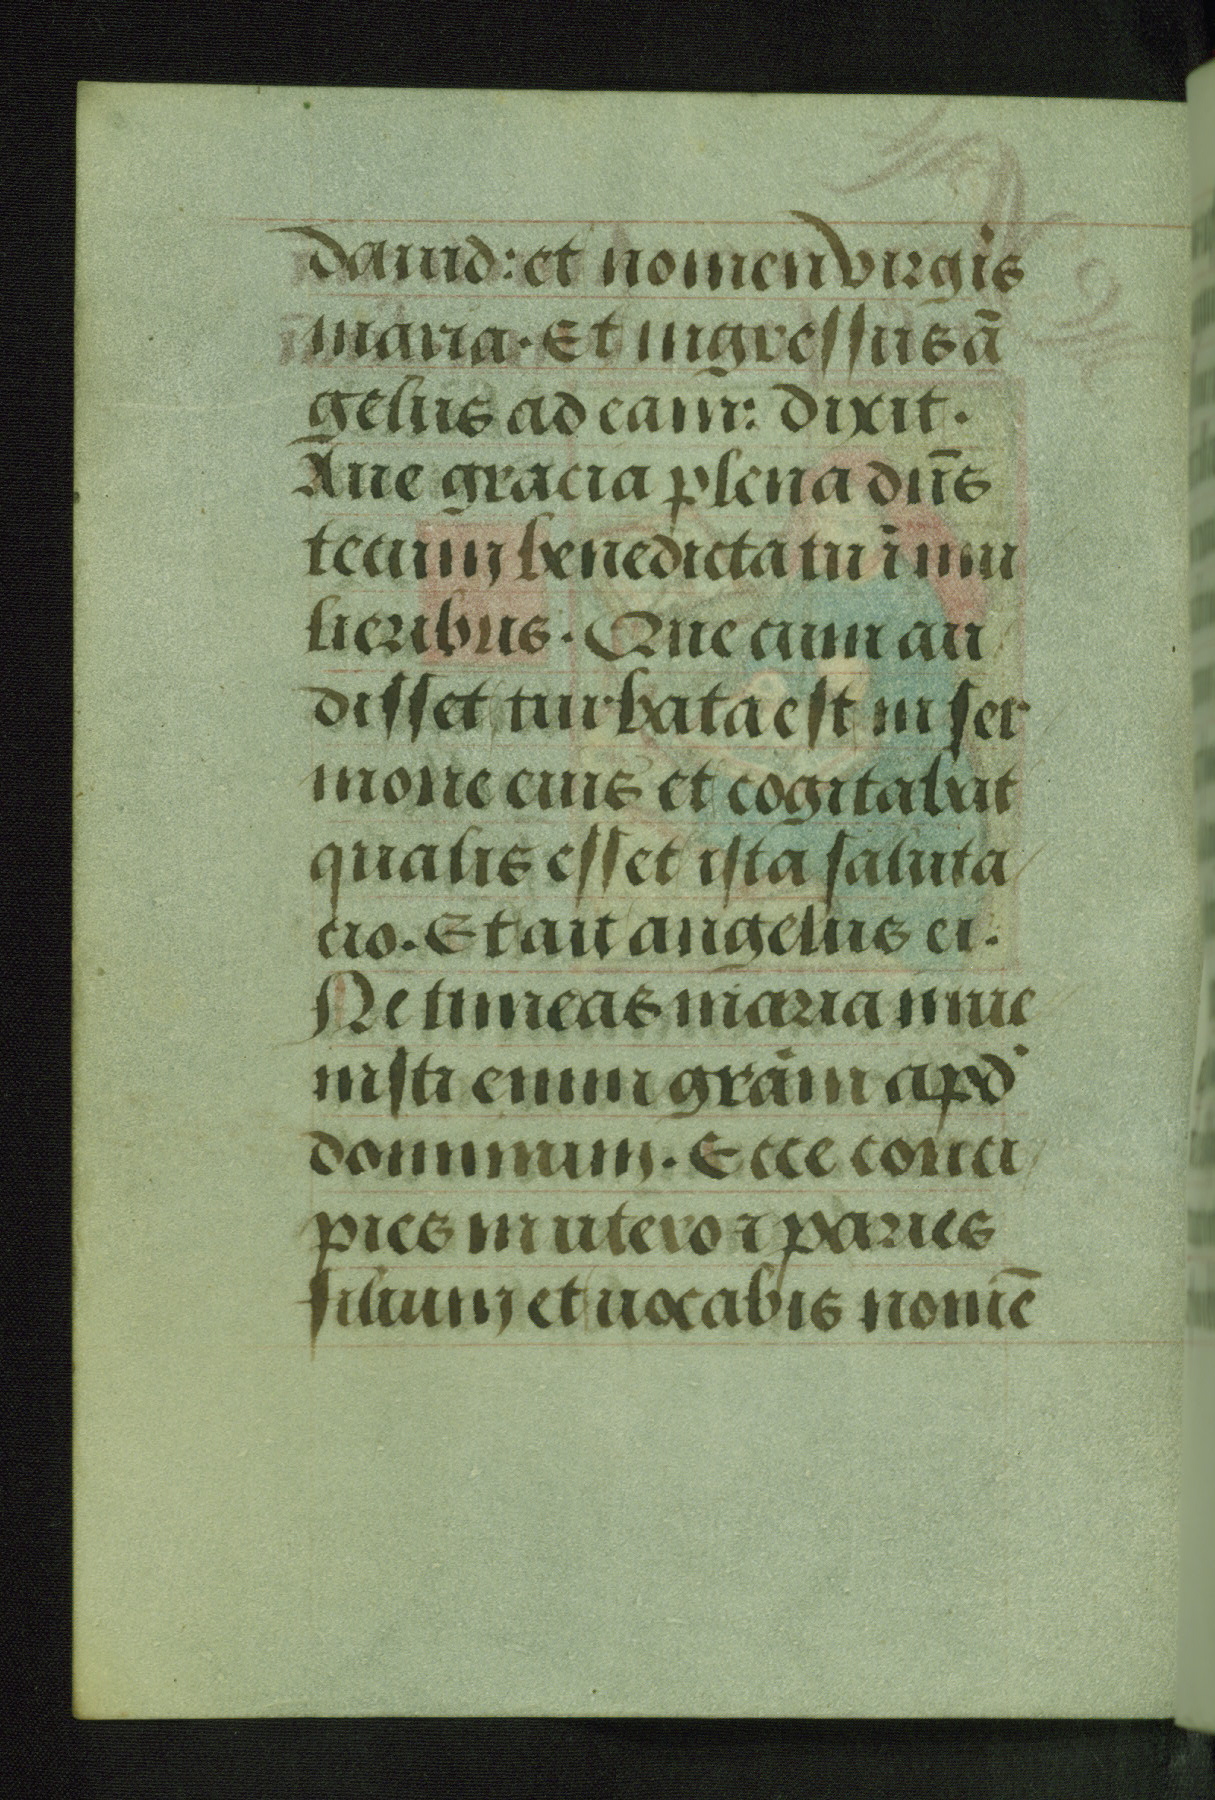 dauid: et nomen virgĩs
maria. Et ingressus ã
gelus ad eam: dixit.
Aue gracia plena dn̄s
tecum benedicta tu ĩ mu
lieribus. Que cum au
disset turbata est in ser
mone eius et cogitabat
qualis esset ista saluta
cio. Et ait angelus ei.
Ne timeas maria inue
nisti enim grãm apd'
dominum. Ecce conci
pies in utero ⁊ paries
filium et uocabis nomē